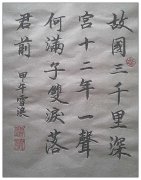 故國三千里深
宮十二年一聲
何滿子雙淚落
君前 甲午雪濤